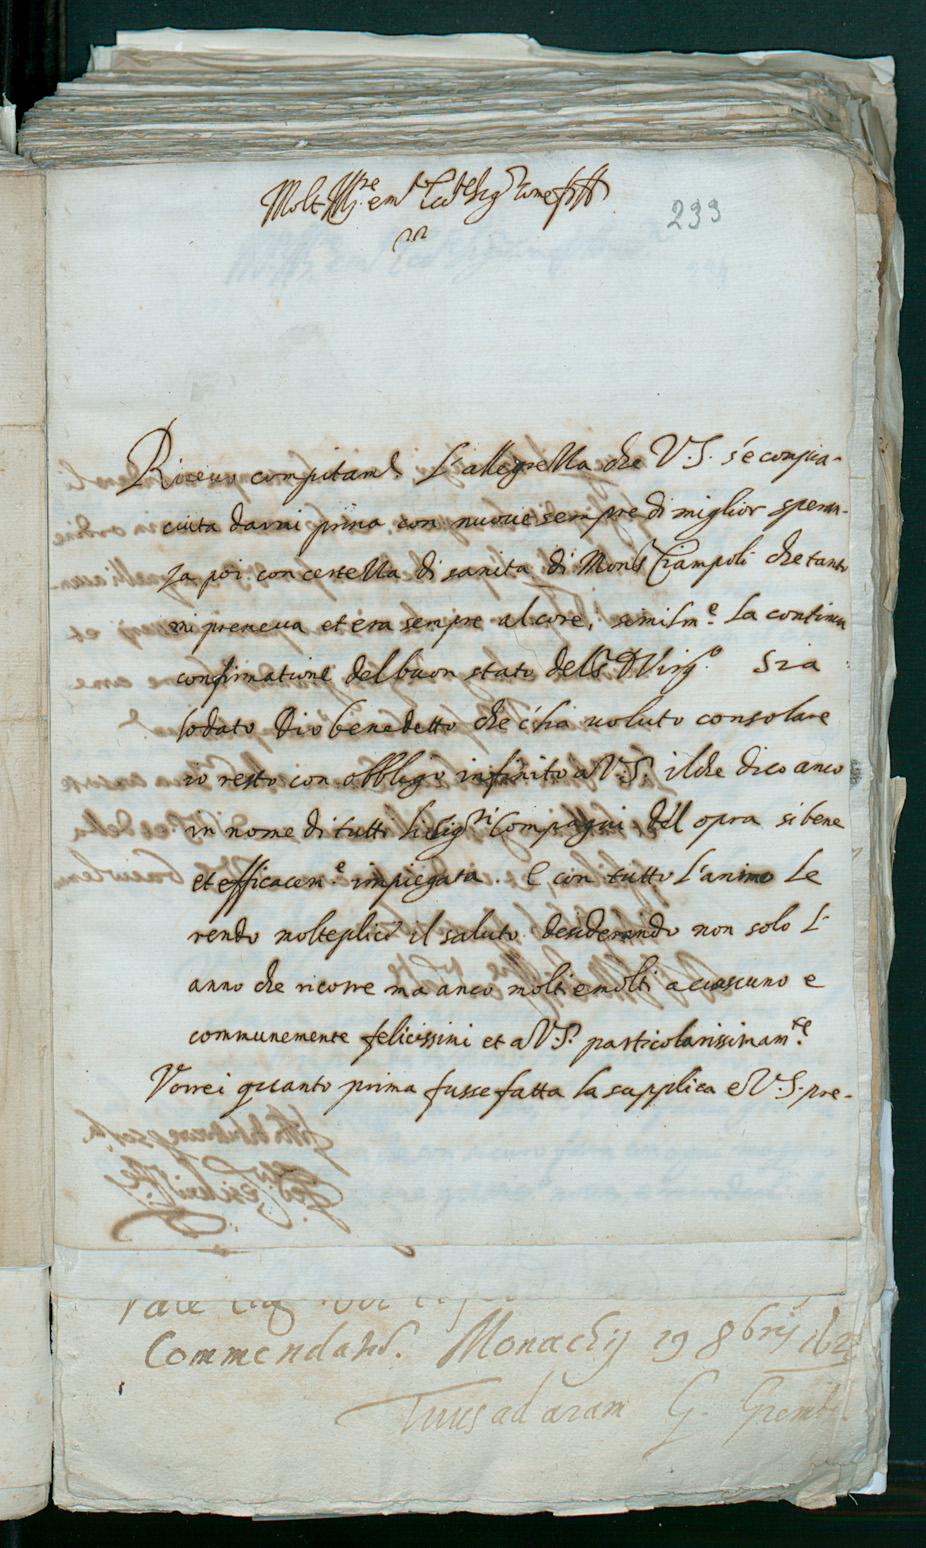 Molt Ill.re em.
233
Riceuo compitam.te L'allegrezza che V.S. s'è compia-
ciuta darmi prima con nuoue sempre di miglior speran-
za poi con certezza di sanita di Mons.r Ciampoli che tanto
mi premeua et era sempre al core, similm.e la continua
confirmatione del buon stato del S. D Virg.o Sia
lodato Dio benedetto che c'ha uoluto consolare
io resto con obbligo infinito a V.S. il che dico anco
in nome di tutti li Sig.ri Compagni del opra si bene
et efficacem.e impiegata. E con tutto L'animo Le
rendo molteplici il saluto desiderando non solo L'
anno che ricorre ma anco molti e molti a ciascuno e
communemente felicissimi et a V.S. particolarissimam.te
Vorrei quanto prima fusse fatta la supplica e V.S. pre-
Vale
Commendabis. Monachij 19 8bris 162
Tuus ad aram G.